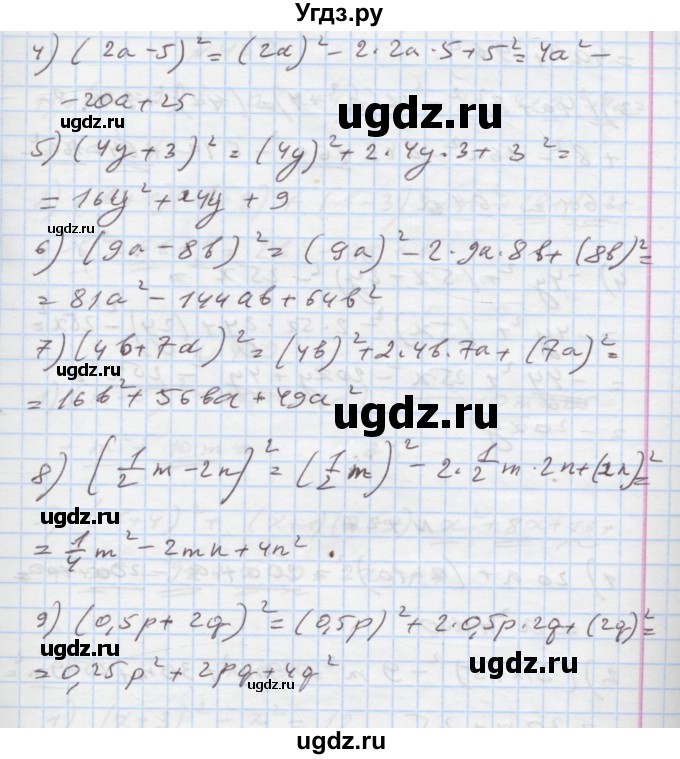 Угдз.ру
4) (2a - 5)² = (2a)² - 2·2a·5 + 5² = 4a² -
- 20a + 25
ugdz.ru
ugdz.ru
5) (4y + 3)² = (4y)² + 2·4y·3 + 3² =
= 16y² + 24y + 9
ugdz.ru
6) (9a - 8b)² = (9a)² - 2·9a·8b + (8b)² =
= 81a² - 144ab + 64b²
7) (4b + 7a)² = (4b)² + 2·4b·7a + (7a)² =
ugdz.ru
= 16b² + 56ba + 49a²
ugdz.ru
8) (1/2 m - 2n)² = (1/2 m)² - 2·1/2 m·2n + (2n)² =
ugdz.ru
= 1/4 m² - 2mn + 4n².
9) (0,5p + 2q)² = (0,5p)² + 2·0,5p·2q + (2q)² =
ugdz.ru
= 0,25p² + 2pq + 4q²
ugdz.ru
ugdz.ru